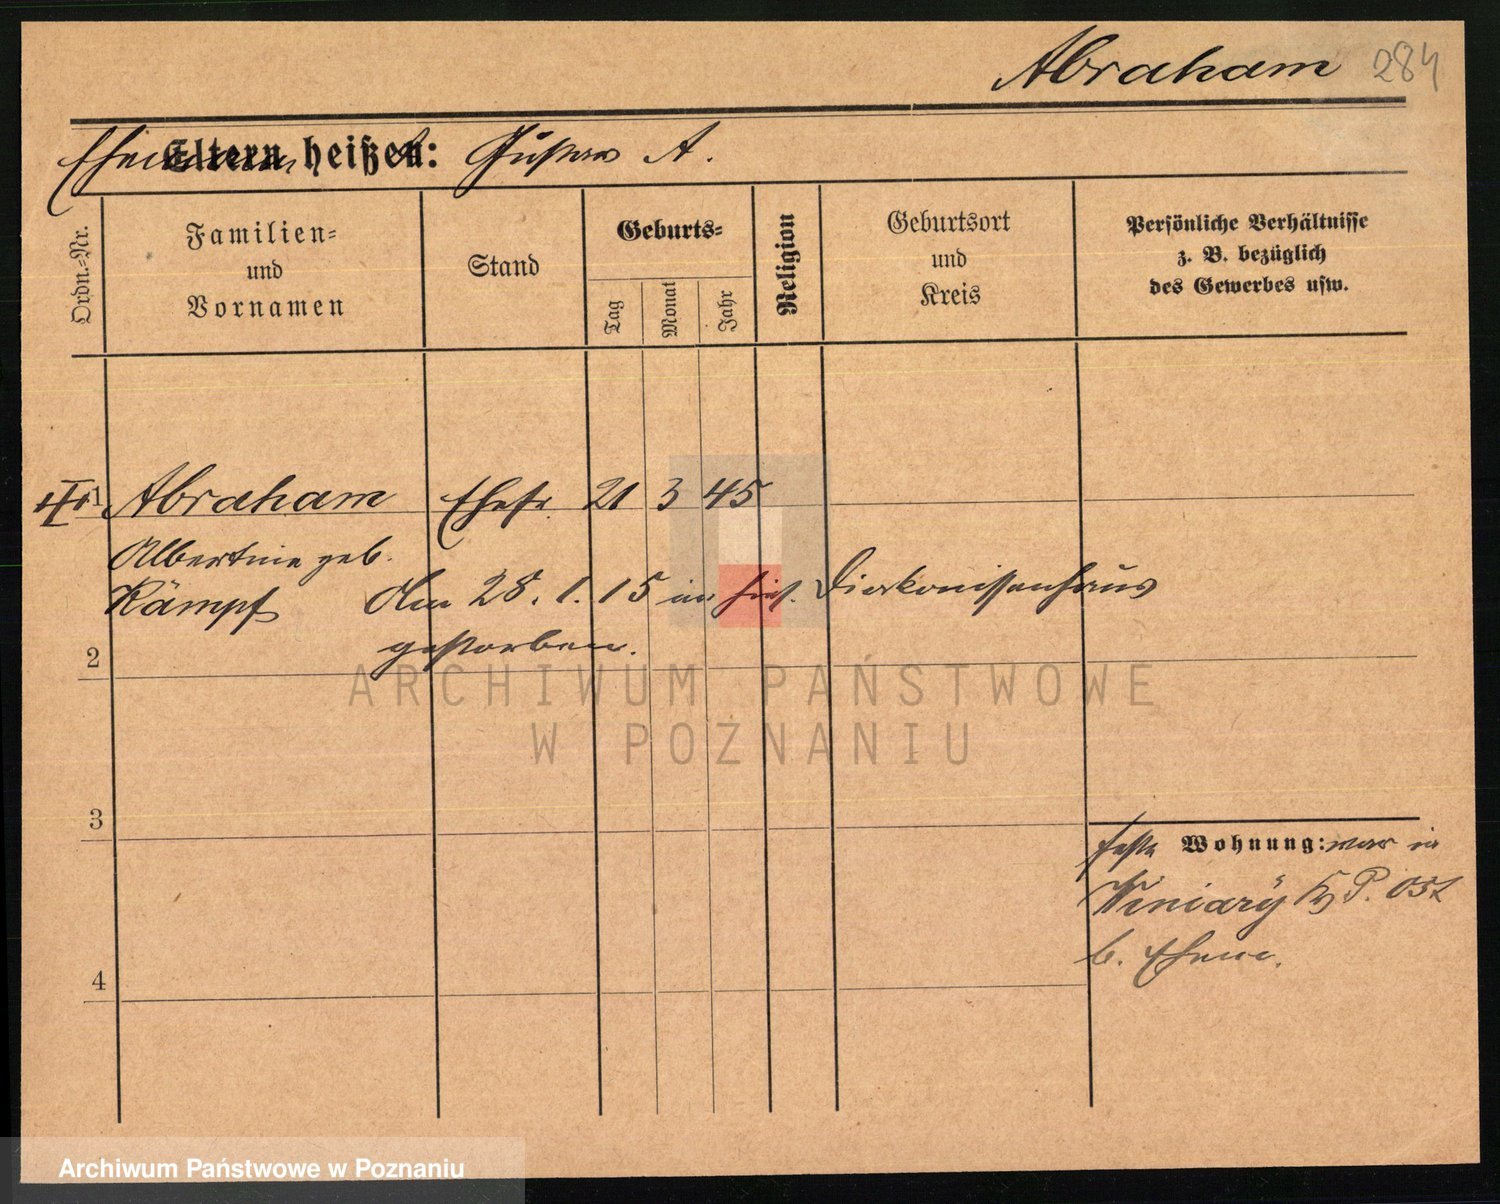 Abraham 284
Eltern heißen: Gustav A.
Ordn.=Nr.
Familien=
und
Vornamen
Stand
Geburts=
Tag
Monat
Jahr
Religion
Geburtsort
und
Kreis
Persönliche Verhältnisse
z. B. bezüglich
des Gewerbes usw.
1 Abraham Ehefr. 21 3 45
Albertine geb.
Kämpf Am 28. 1. 15 im hies. Diakonissenhaus
gestorben.
2
3
4
feste Wohnung: war in
Winiary
b. Ehem.
ARCHIWUM PAŃSTWOWE
W POZNANIU
Archiwum Państwowe w Poznaniu